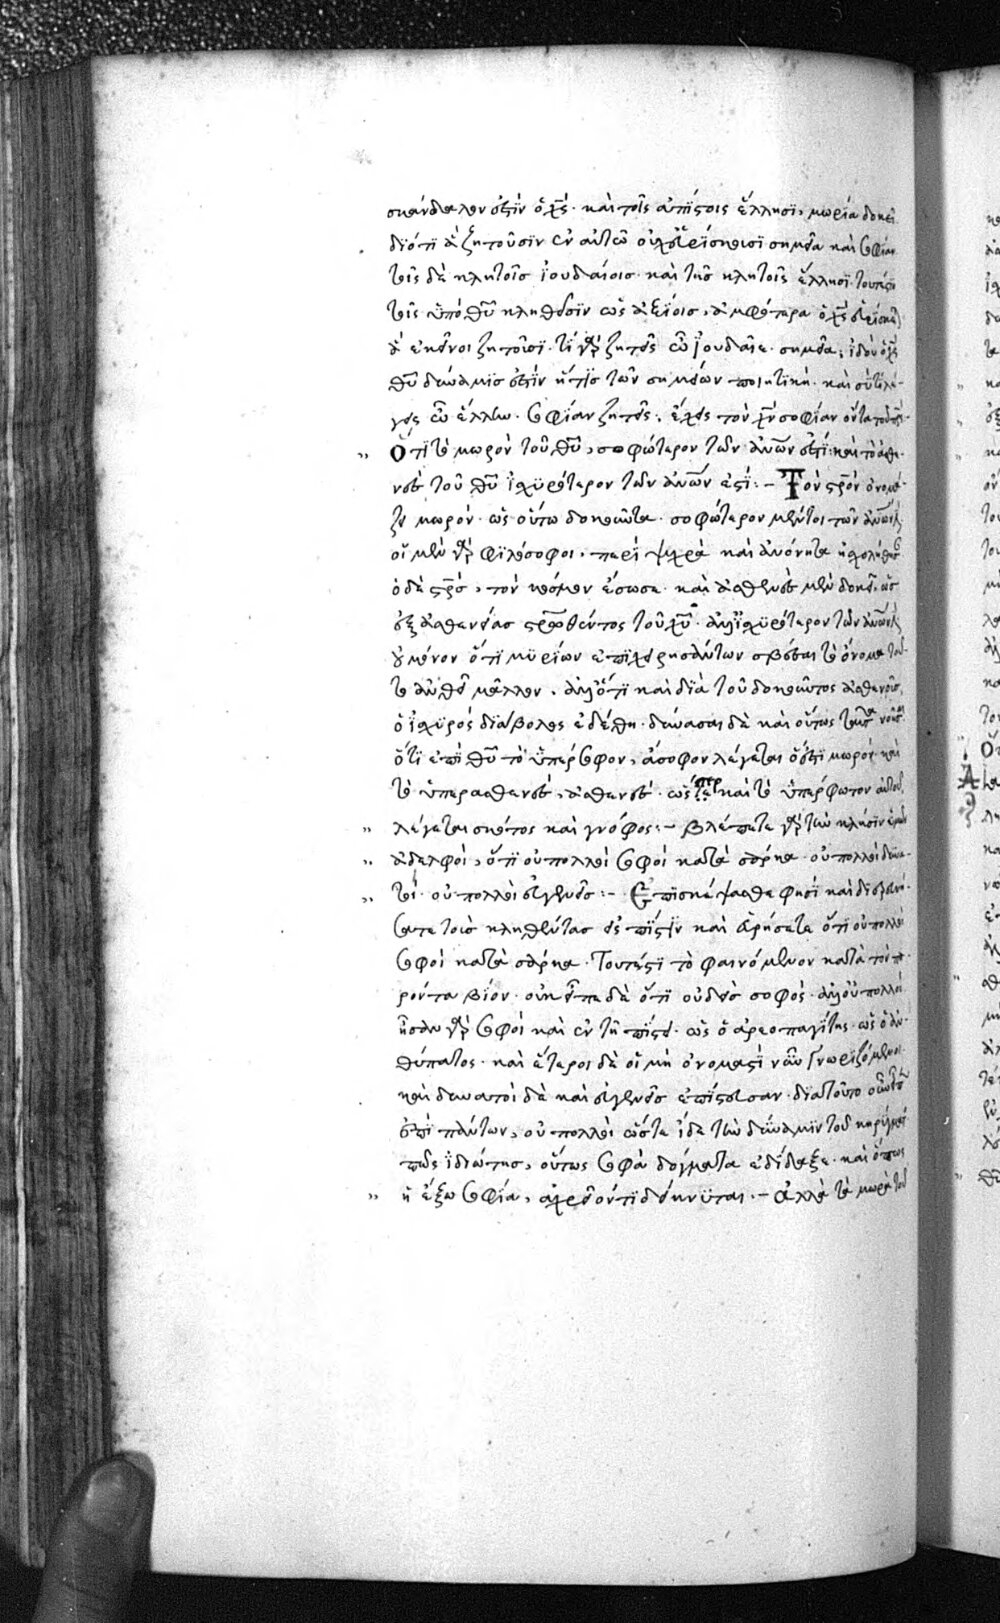 σκάνδαλόν ἐστιν ὁ χς̅· καὶ τοῖς ἀπίστοις ἕλλησι, μωρία δοκεῖ
διότι ἃ ζητοῦσιν ἐν αὐτῶ οὐχ εὑρίσκουσι σημεῖα καὶ σοφίαν
τοῖς δὲ κλητοῖς ἰουδαίοις· καὶ τοῖς κλητοῖς ἕλλησι· τουτέστι
τοῖς ὑπὸ θυ̅ κληθεῖσιν ὡς ἀξίοις, ἀμφότερα ὁ χς̅ εὑρίσκεται
ἃ ἐκεῖνοι ζητοῦσι· τί γὰρ ζητεῖς ὦ ἰουδαῖε· σημεῖα; ἰδοὺ ὁ χς̅
θυ̅ δύναμις ἐστὶν ἥτις τῶν σημείων ποιητικὴ· καὶ σὺ τί λέ-
γεις ὦ ἕλλην· σοφίαν ζητεῖς; ἔχεις τὸν χν̅ σοφίαν ὄντα τοῦ πρς̅·
Ὅτι τὸ μωρὸν τοῦ θυ̅, σοφώτερον τῶν ἀνων̅ ἐστί· καὶ τὸ ἀσθε-
νὲς τοῦ θυ̅ ἰσχυρότερον τῶν ἀνων̅ ἐστί:- Τὸν στρο̅ν ὀνομά-
ζει μωρόν· ὡς οὕτω δοκοῦντα· σοφώτερον μέντοι τῶν ἀνων̅
οἱ μὲν γὰρ φιλόσοφοι, περὶ μικρὰ καὶ ἀνόνητα ἠσχολήθησαν
ὁ δὲ στρο̅ς, τὸν κόσμον ἔσωσε· καὶ ἀσθενὲς μὲν δοκεῖ, ὡς
ἐξ ἀσθενείας στρωθέντος τοῦ χυ̅· ἀλλ' ἰσχυρότερον τῶν ἀνων̅
οὐ μόνον ὅτι μυρίων ἐπιχειρησάντων σβέσαι τὸ ὄνομα τοῦ-
το ἀνθεῖ μᾶλλον, ἀλλ' ὅτι καὶ διὰ τοῦ δοκοῦντος ἀσθενοῦς,
ὁ ἰσχυρὸς διάβολος ἐδέθη· δύνασαι δὲ καὶ οὕτως ταῦτα νοῆσαι
ὅτι ἐπὶ θυ̅ τὸ ὑπέρσοφον, ἄσοφον λέγεται ὅ ἐστι μωρόν· καὶ
τὸ ὑπερασθενὲς, ἀσθενές· ὥσπερ καὶ τὸ ὑπέρφωτον αὐτοῦ,
λέγεται σκότος καὶ γνόφος:- βλέπετε γὰρ τὴν κλῆσιν ὑμῶν
ἀδελφοὶ, ὅτι οὐ πολλοὶ σοφοὶ κατὰ σάρκα· οὐ πολλοὶ δυνα-
τοί· οὐ πολλοὶ εὐγενεῖς:- Ἐπισκέψασθε φησὶ καὶ διερευνή-
σατε τοὺς κληθέντας εἰς πίστιν καὶ εὑρήσετε ὅτι οὐ πολλοὶ
σοφοὶ κατὰ σάρκα· Τουτέστι τὸ φαινόμενον κατὰ τὸν πα-
ρόντα βίον· οὐκ εἶπε δὲ ὅτι οὐδεὶς σοφός· ἀλλ' οὐ πολλοί·
ἦσαν γὰρ σοφοὶ καὶ ἐν τῆ πίστει· ὡς ὁ ἀρεοπαγίτης· ὡς ὁ ἀν-
θύπατος· καὶ ἕτεροι δὲ οἱ μὴ ὀνομαστὶ νῦν γνωριζόμενοι·
καὶ δυνατοὶ δὲ καὶ εὐγενεῖς ἐπίστευσαν· διὰ τοῦτο
ἐπὶ πάντων, οὐ πολλοὶ ὥστε ἰδὲ τὴν δύναμιν τοῦ κηρύγματος
πῶς ἰδιώτης, οὕτως σοφὰ δόγματα ἐδίδαξε· καὶ ὅπως
ἡ ἔξω σοφία, ἀχρεῖόν τι δείκνυται:- ἀλλὰ τὰ μωρὰ τοῦ